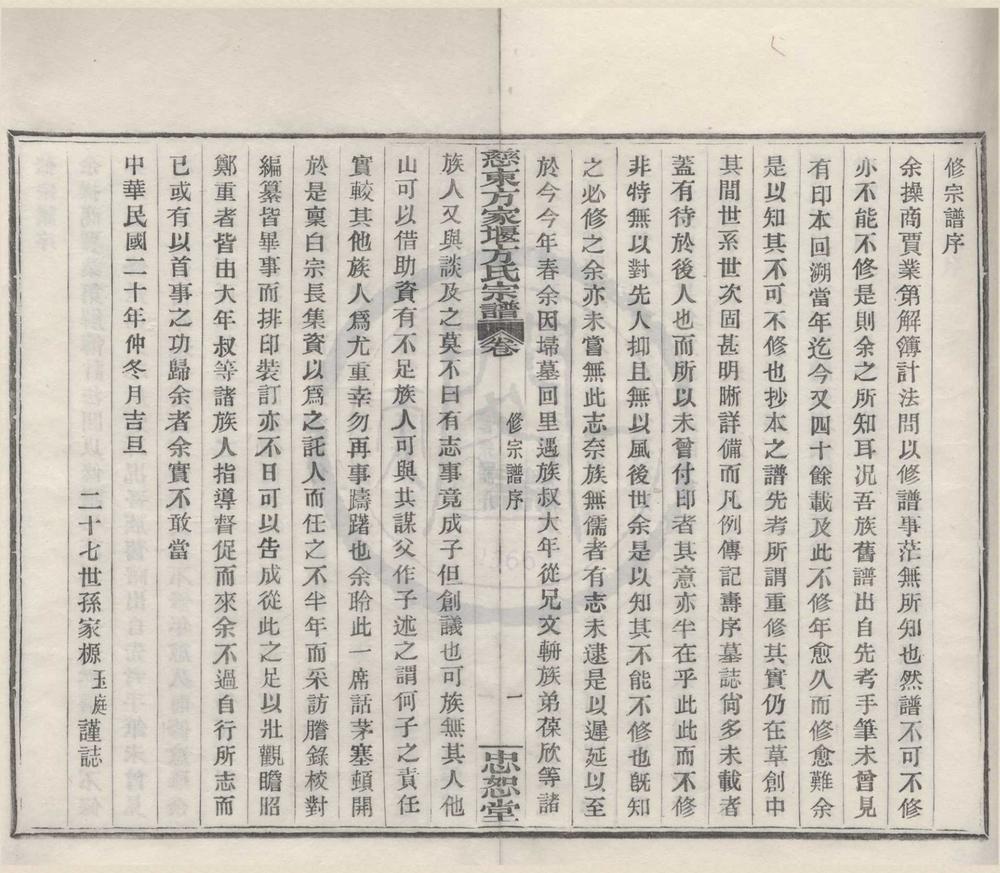 修宗譜序
余操商賈業第解簿計法問以修譜事茫無所知也然譜不可不修
亦不能不修是則余之所知耳况吾族舊譜出自先考手筆未曾見
有印本回溯當年迄今又四十餘載及此不修年愈久而修愈難余
是以知其不可不修也抄本之譜先考所謂重修其實仍在草創中
其間世系世次固甚明晰詳備而凡例傳記壽序墓誌尙多未載者
蓋有待於後人也而所以未曾付印者其意亦半在乎此此而不修
非特無以對先人抑且無以風後世余是以知其不能不修也旣知
之必修之余亦未嘗無此志奈族無儒者有志未逮是以遲延以至
於今今年春余因埽墓回里遇族叔大年從兄文軿族弟葆欣等諸
慈東方家堰方氏宗譜 卷 修宗譜序 一 忠恕堂
族人又與談及之莫不曰有志事竟成子但創議也可族無其人他
山可以借助資有不足族人可與共謀父作子述之謂何子之責任
實較其他族人爲尤重幸勿再事躊躇也余聆此一席話茅塞頓開
於是稟白宗長集資以爲之託人而任之不半年而采訪謄錄校對
編纂皆畢事而排印裝訂亦不日可以告成從此之足以壯觀瞻昭
鄭重者皆由大年叔等諸族人指導督促而來余不過自行所志而
已或有以首事之功歸余者余實不敢當
中華民國二十年仲冬月吉旦
二十七世孫家榞玉庭謹誌